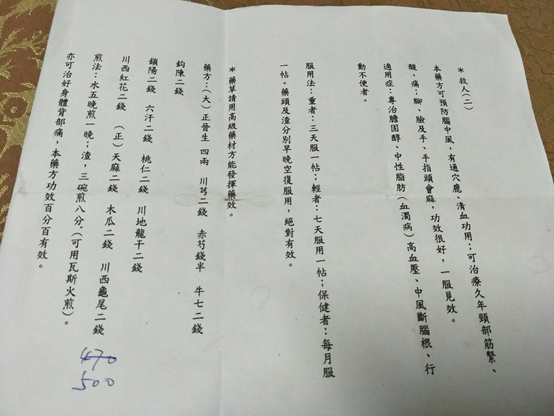 ＊救人(二)
本藥方可預防腦中風，有通穴鹿、清血功用；可治療久年頸部筋緊、
酸、痛；腳、臉及手、手指頭會麻，功效很好，一服見效。
適用症：專治膽固醇、中性脂肪(血濁病)高血壓、中風斷腦根、行
動不便者。
服用法：重者：三天服一帖；輕者：七天服用一帖；保健者：每月服
一帖。藥頭及渣分別早晚空復服用，絕對有效。
＊藥草請用高級藥材方能發揮藥效。
藥方：(大)正晉生 四兩 川芎二錢 赤芍錢半 牛七二錢
鈎陳二錢
鎖陽二錢 六汗二錢 桃仁二錢 川地龍干二錢
川西紅花二錢 (正)天麻二錢 木瓜二錢 川西龜尾二錢
煎法：水五晚煎一晚：渣，三碗煎八分．(可用瓦斯火煎)。
亦可治好身體背部痛，本藥方功效百分百有效。
470
500